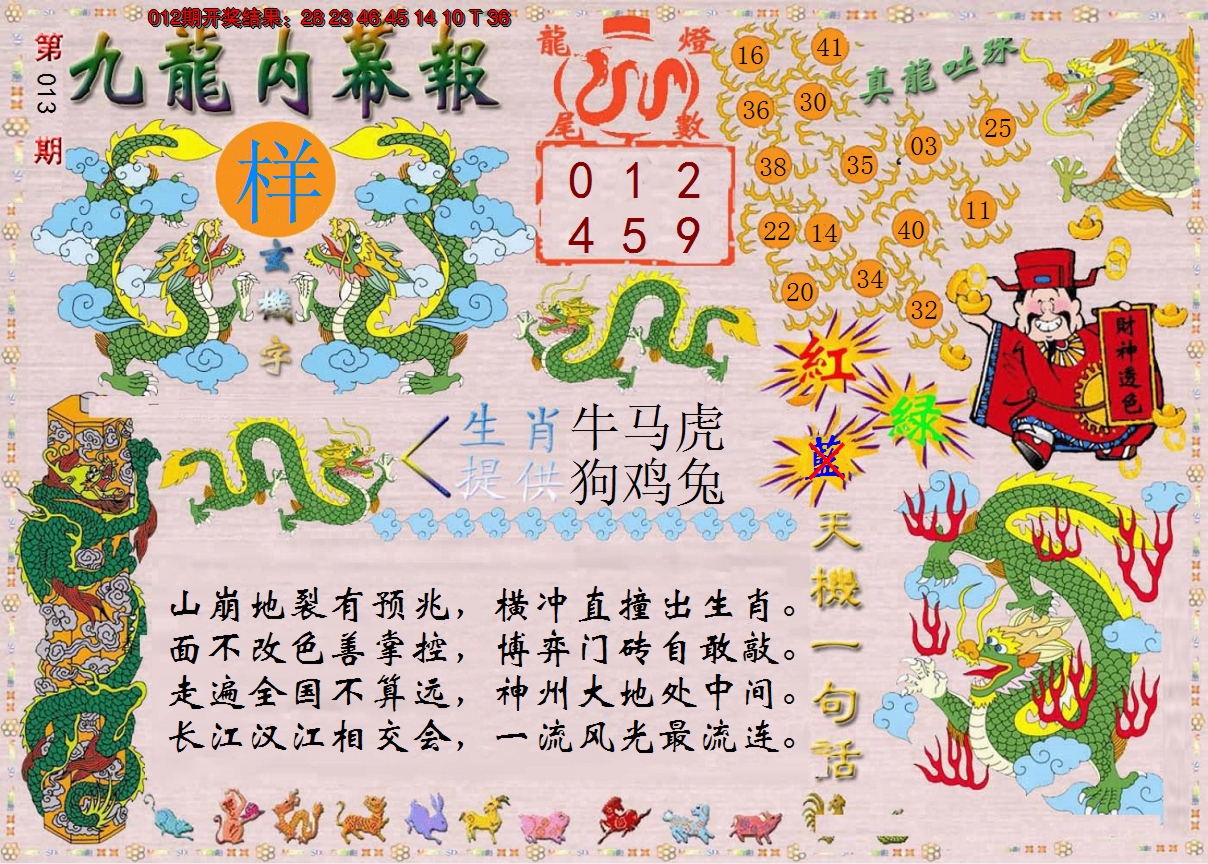 012期开奖结果：28 23 46 45 14 10 T 36
第013期
九龍内幕報
样
玄機字
龍燈
尾數
0 1 2
4 5 9
真龍吐珠
16
41
36
30
38
35
03
25
22
14
40
11
20
34
32
紅
綠
藍
財神透色
生肖
提供
牛马虎
狗鸡兔
山崩地裂有预兆，横冲直撞出生肖。
面不改色善掌控，博弈门砖自敢敲。
走遍全国不算远，神州大地处中间。
长江汉江相交会，一流风光最流连。
天機一句話